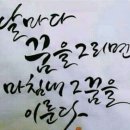 날마다
꿈을 그리면
마침내 그 꿈을
이룬다.